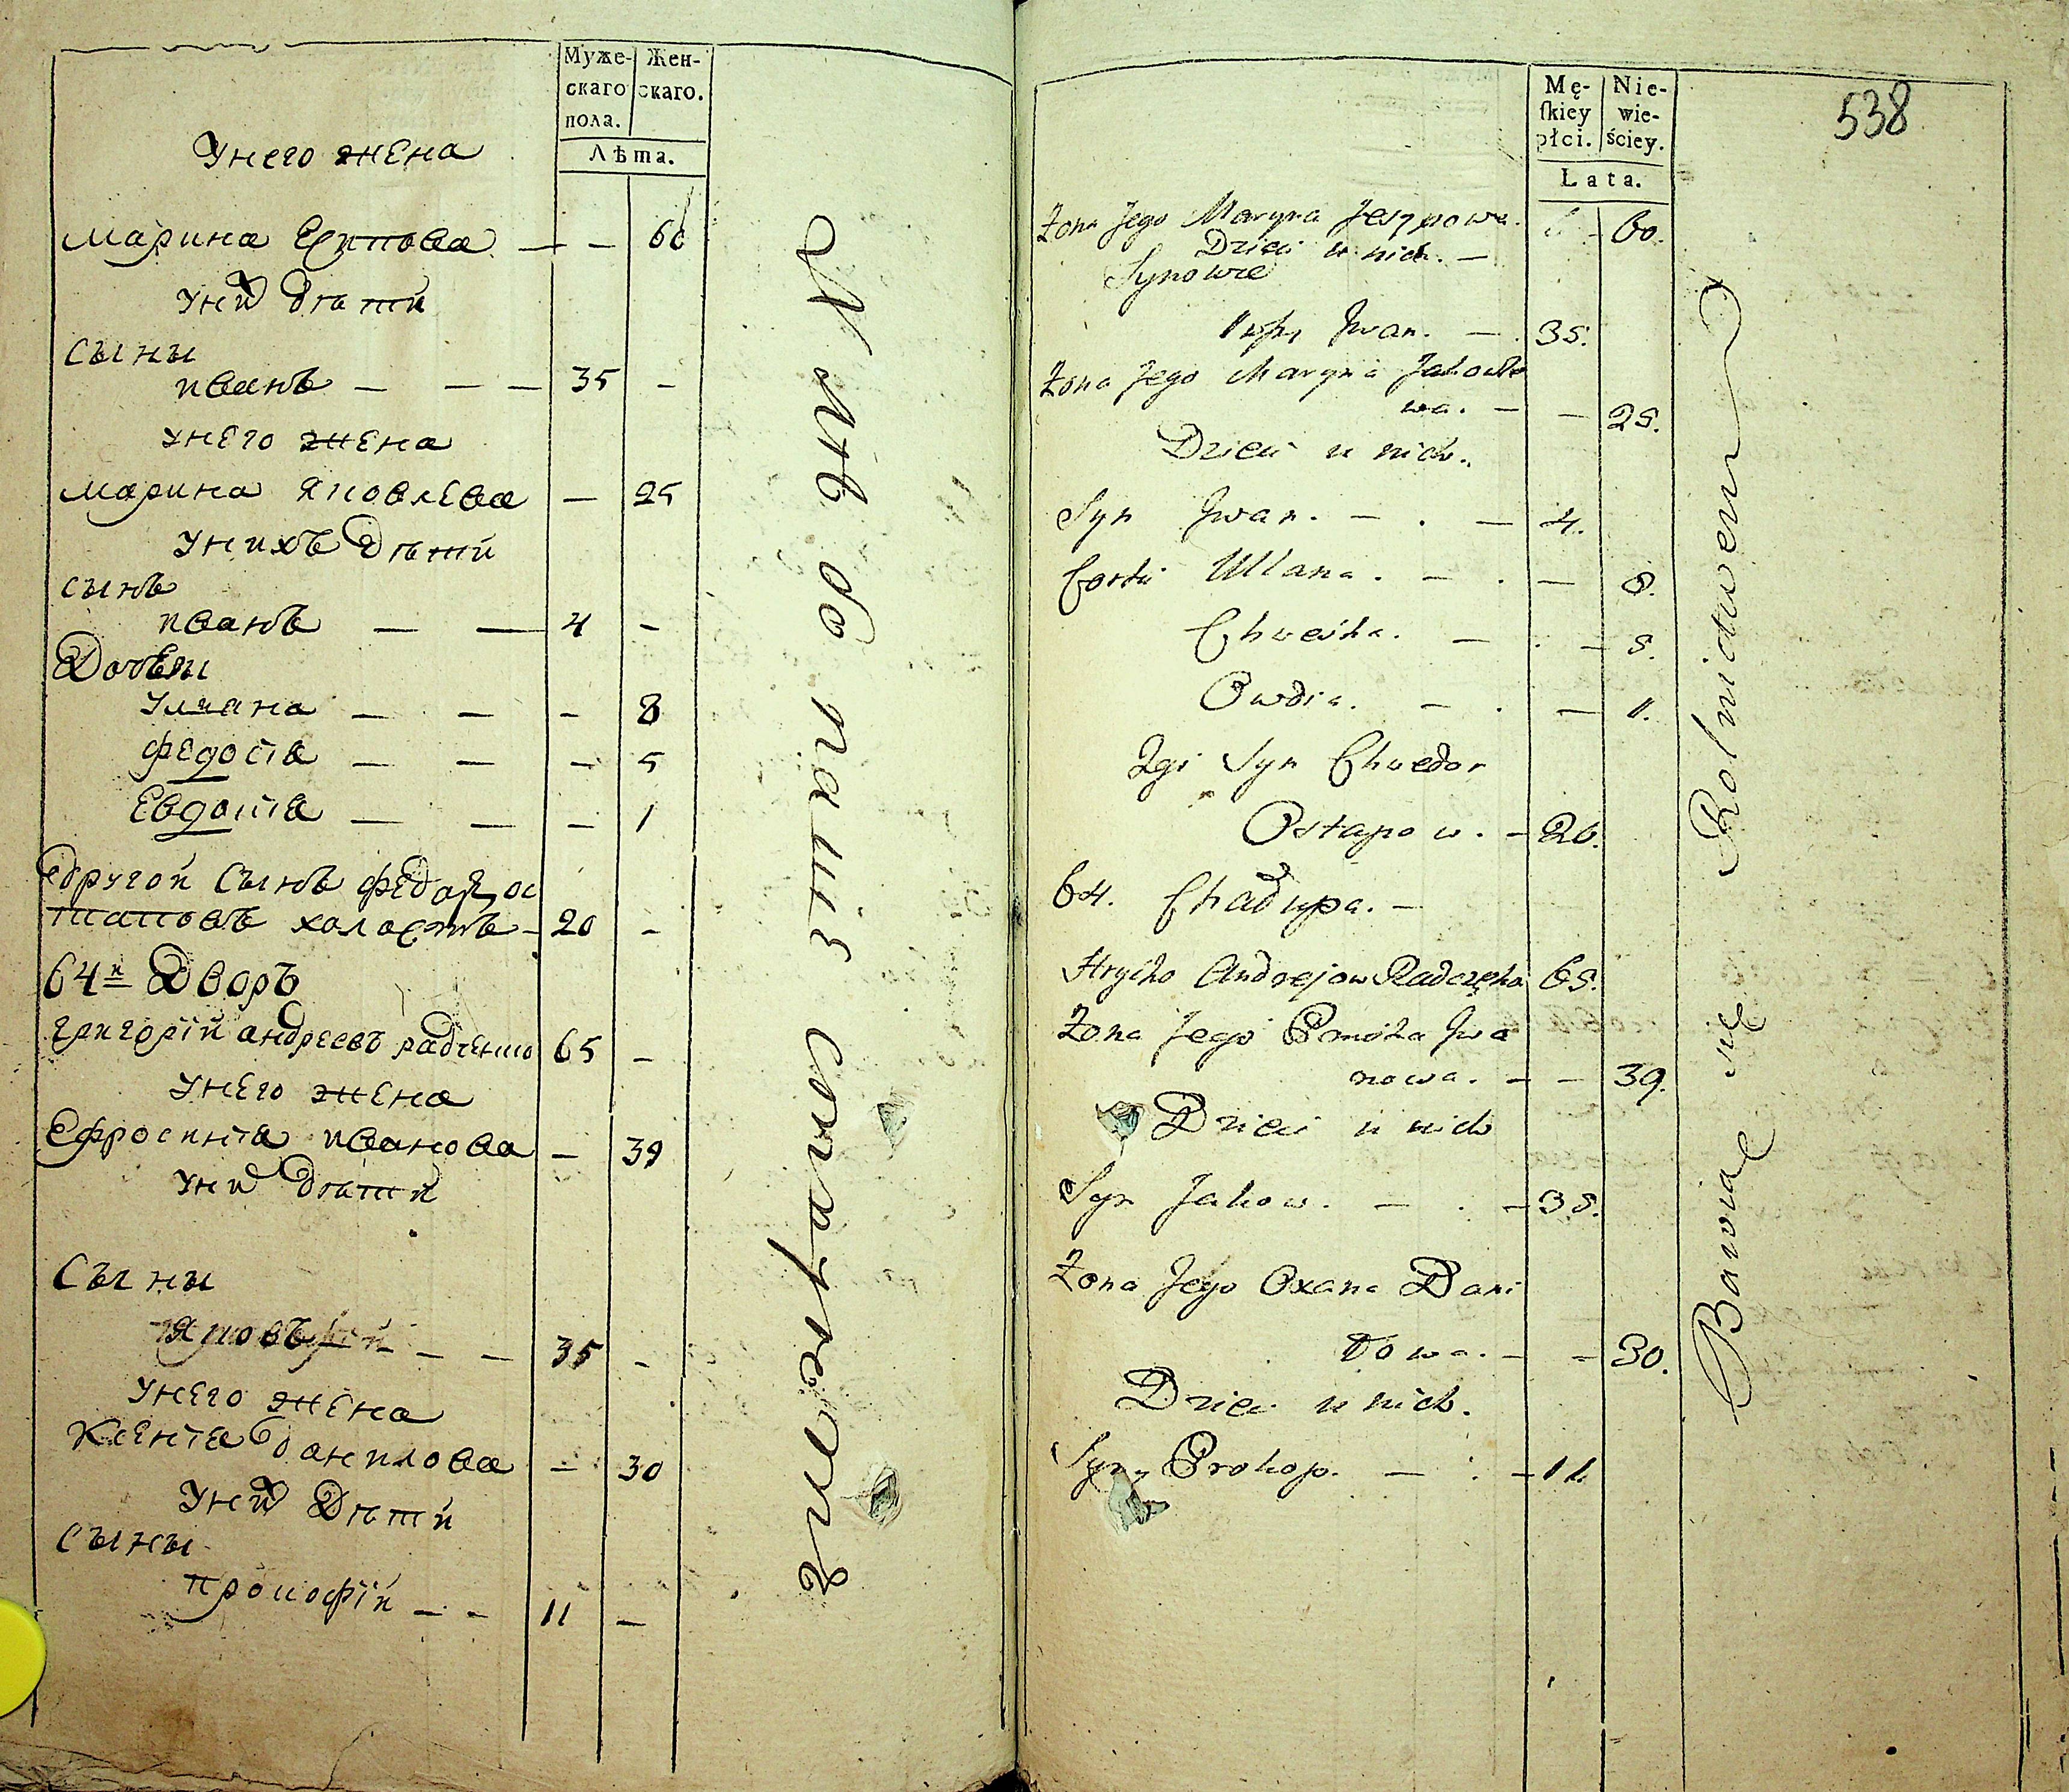 Муже-
скаго
пола.
Жен-
скаго.
Лѣта.
Унего жена
Марина Есипова — — 60
Уни дѣти
Сыны
иванъ — — — 35 —
унего жена
марина Яковлева — 25
Унихъ дѣти
сынъ
иванъ — — 4 —
Дочери
Улиана — — — 8
федосїа — — — 5
Евдокїа — — — 1
другой Сынъ федоръ ос
таповъ холостъ — 20 —
64й Дворъ
григорїй андреевъ радченко 65 —
Унего жена
Ефросинїа иванова — 39
Уни дѣти
Сыны
Яковъ — — — 35 —
Унего жена
Ксенїа данилова — 30
Уни Дѣти
Сыны
прокофїй — — 11 —
Хлѣбопашествомъ
Mę-
ſkiey
płci.
Nie-
wie-
ściey.
Lata.
538
Zona Jego Maryna Jesypowa. — 60.
Dzieci u nich. —
Synowie
1wszy Jwan. — 35.
Zona Jego Maryna Jakowle
wa. — — 25.
Dzieci u nich.
Syn Jwan. — . — 4.
Corki Ulana. — . — 8.
Chweśka. — . — 5.
Owdia. — . — 1.
2gi Syn Chwedor
Ostapow. — 20.
64. Chałupa. —
Hryćko Andrejow Radczęko 65.
Zona Jego Prośka Jwa
nowa. — — 39.
Dzieci u nich
Syn Jakow. — . — 35.
Zona Jego Oxana Dani
łowa. — — 30.
Dzieci u nich.
Syn Prokop. — : — 11.
Bawią się Rolnictwem